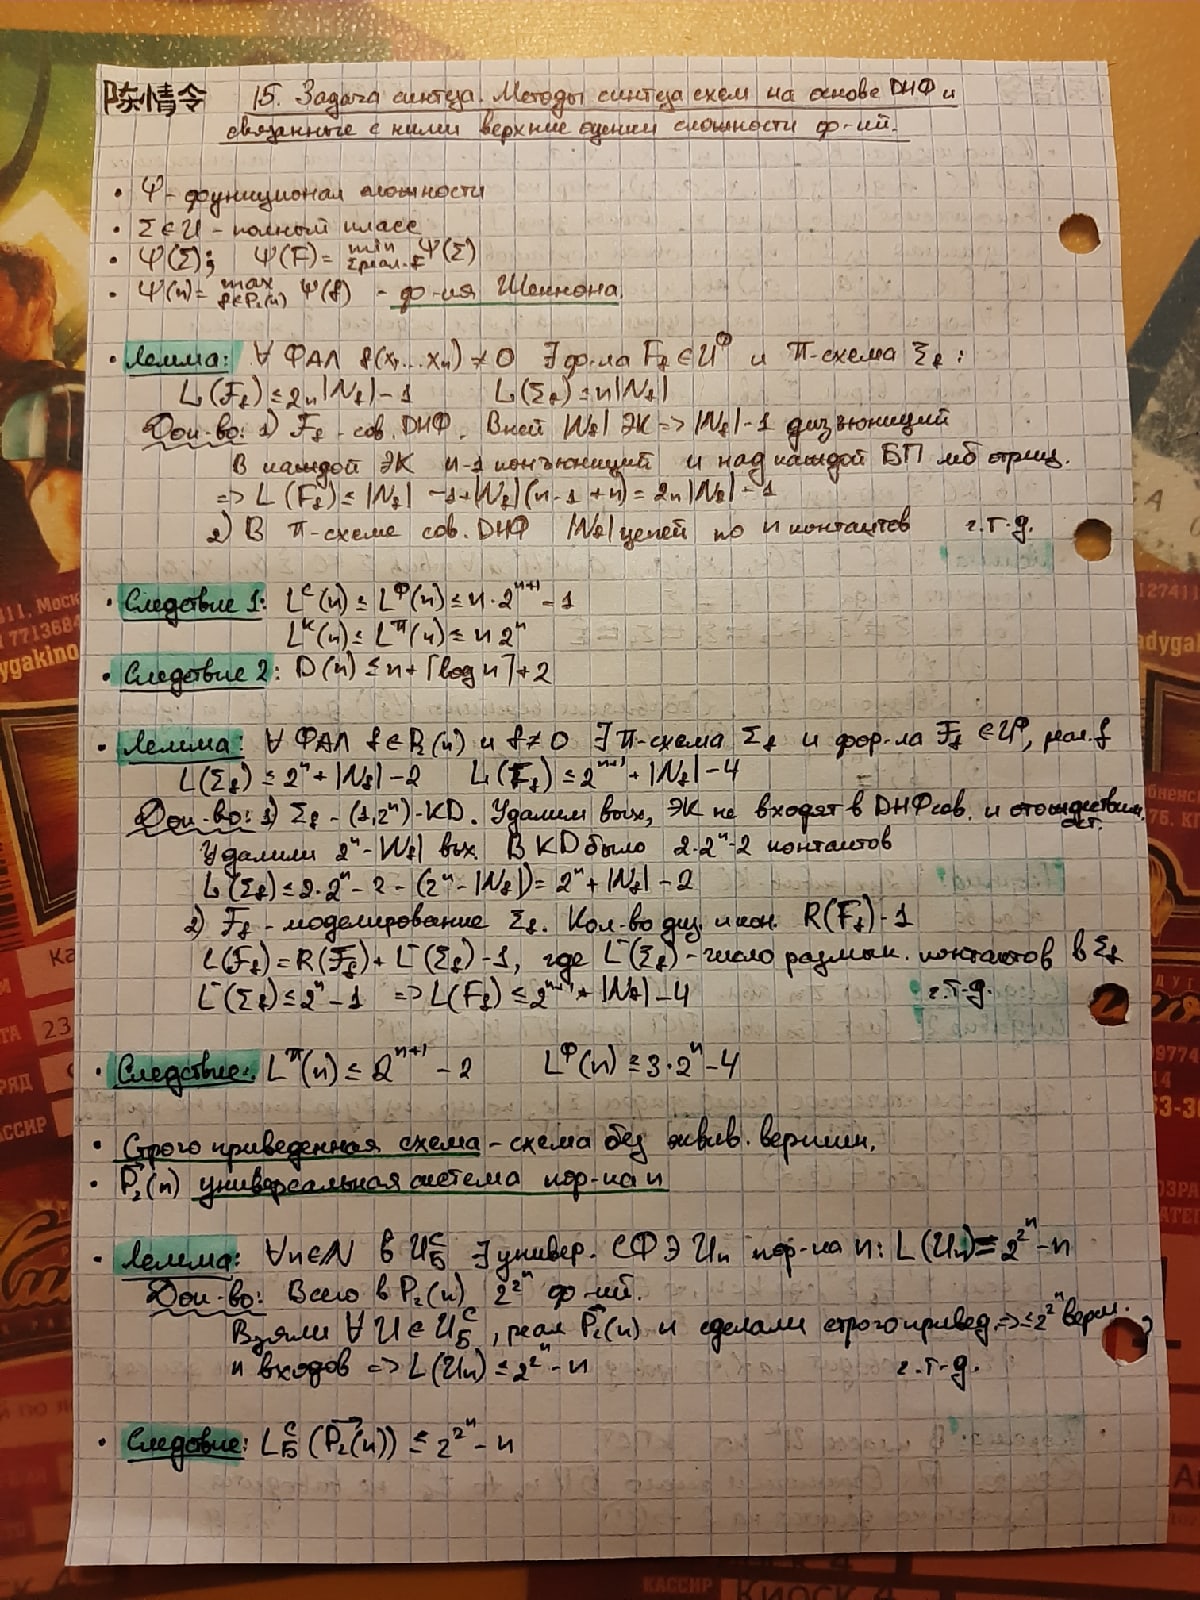 陈情令 15. Задача синтеза. Методы синтеза схем на основе ДНФ и
связанные с ними верхние оценки сложности ф-ий.
• Ψ - функционал сложности
• Σ ∈ U - полный класс
• Ψ(Σ); Ψ(F) = min Σ реал. F Ψ(Σ)
• Ψ(n) = max f∈P₂(n) Ψ(f) - ф-ия Шеннона.
• Лемма: ∀ ФАЛ f(x₁...xₙ) ≠ 0 ∃ ф-ла F_f ∈ U^Ф и π-схема Σ_f :
L(F_f) ≤ 2n|N_f| - 1 L(Σ_f) ≤ n|N_f|
Док-во: 1) F_f - сов. ДНФ. В ней |N_f| ЭК => |N_f| - 1 дизъюнкций
В каждой ЭК n-1 конъюнкций и над каждой БП мб отриц.
=> L(F_f) ≤ |N_f| - 1 + |N_f|(n - 1 + n) = 2n|N_f| - 1
2) В π-схеме сов. ДНФ |N_f| цепей по n контактов ч.т.д.
• Следствие 1: L^C(n) ≤ L^Ф(n) ≤ n·2^{n+1} - 1
L^K(n) ≤ L^π(n) ≤ n 2^n
• Следствие 2: D(n) ≤ n + ⌈log n⌉ + 2
• Лемма: ∀ ФАЛ f ∈ P₂(n) и f ≠ 0 ∃ π-схема Σ_f и фор-ла F_f ∈ U^Ф, реал. f
L(Σ_f) ≤ 2^n + |N_f| - 2 L(F_f) ≤ 2^{n+1} + |N_f| - 4
Док-во: 1) Σ_f - (1,2^n)-КД. Удалим вых, ЭК не входят в ДНФ сов. и отождествим ост.
Удалили 2^n - |N_f| вых. В КД было 2·2^n - 2 контактов
L(Σ_f) ≤ 2·2^n - 2 - (2^n - |N_f|) = 2^n + |N_f| - 2
2) F_f - моделирование Σ_f. Кол-во диз. и кон. R(F_f) - 1
L(F_f) = R(F_f) + L⁻(Σ_f) - 1, где L⁻(Σ_f) - число размык. контактов в Σ_f
L⁻(Σ_f) ≤ 2^n - 1 => L(F_f) ≤ 2^{n+1} + |N_f| - 4 ч.т.д.
• Следствие: L^π(n) ≤ 2^{n+1} - 2 L^Ф(n) ≤ 3·2^n - 4
• Строго приведенная схема - схема без эквив. вершин.
• P⃗₂(n) универсальная система пор-ка n
• Лемма: ∀n∈N в U_Б^C ∃ универ. СФЭ Uₙ пор-ка n: L(Uₙ) ≤ 2^{2^n} - n
Док-во: Всего в P₂(n) 2^{2^n} ф-ий.
Взяли ∀ U ∈ U_Б^C, реал P⃗₂(n) и сделали строго привед. => ≤ 2^{2^n} верш.,
n входов => L(Uₙ) ≤ 2^{2^n} - n ч.т.д.
• Следствие: L_Б^C (P⃗₂(n)) ≤ 2^{2^n} - n